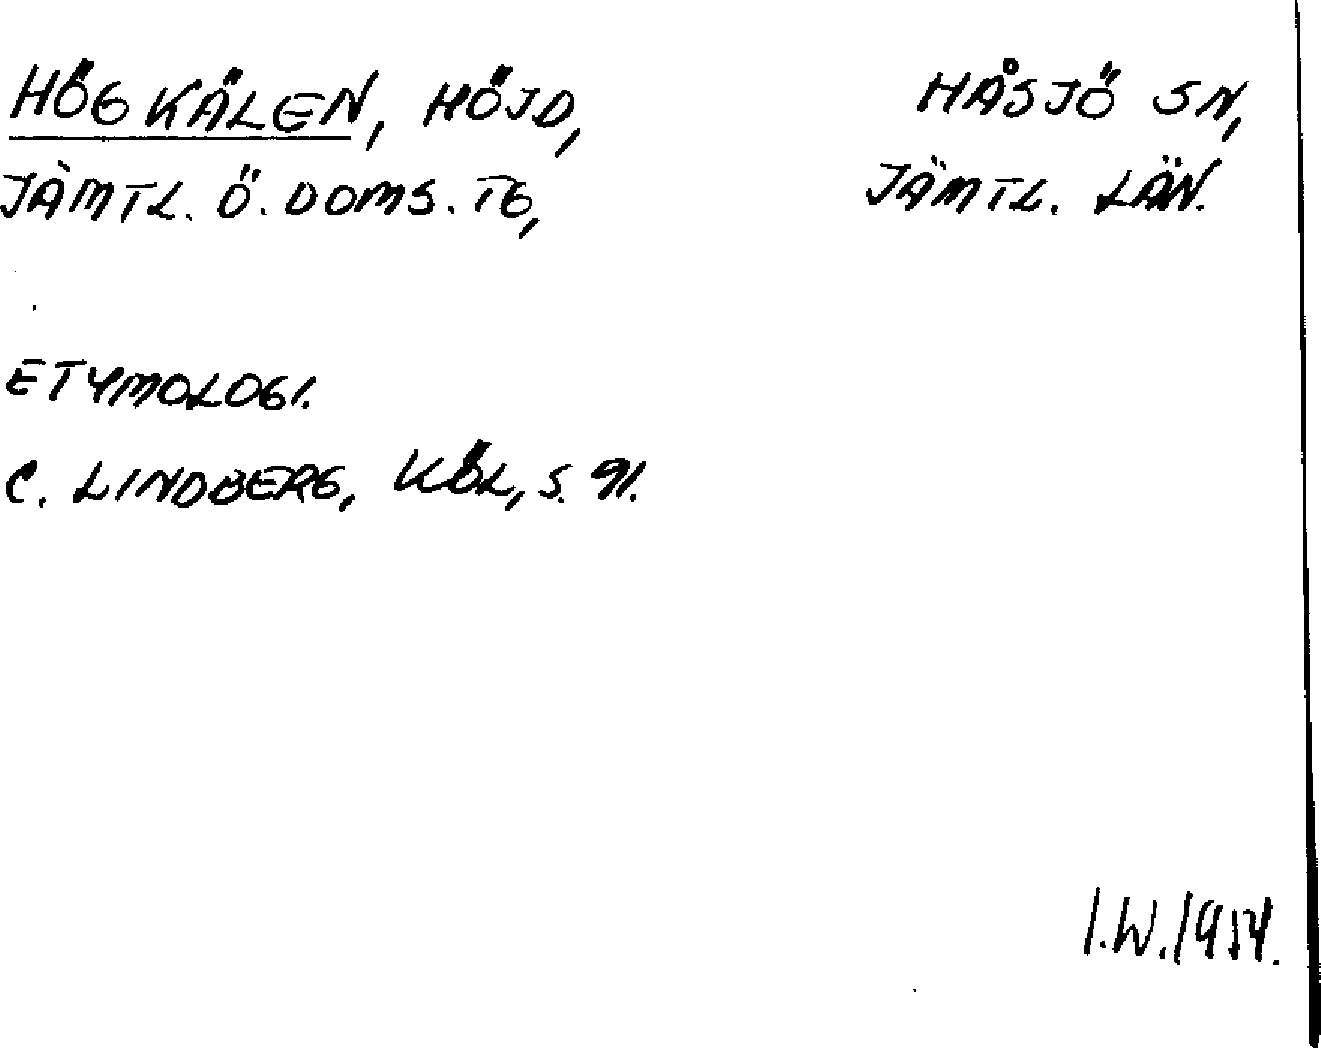 HÖGKÄLEN, HÖJD, HÅSJÖ SN,
JÄMTL. Ö. DOMS. TG, JÄMTL. LÄN.
ETYMOLOGI.
C. LINDBERG, KÖL, S. 91.
I.W. 1954.